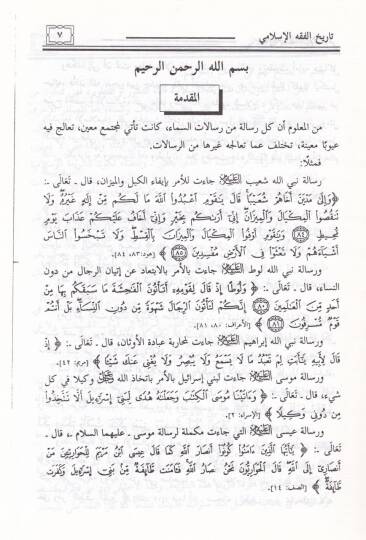 تاريخ الفقه الإسلامي
٧
بسم الله الرحمن الرحيم
المقدمة
من المعلوم أن كل رسالة من رسالات السماء، كانت تأتي لمجتمع معين، تعالج فيه
عيوبًا معينة، تختلف عما تعالجه غيرها من الرسالات.
فمثلًا:
رسالة نبي الله شعيب ﷺ جاءت للأمر بإيفاء الكيل والميزان، قال ـ تَعَالَى ـ:
﴿وَإِلَىٰ مَدْيَنَ أَخَاهُمْ شُعَيْبًا قَالَ يَٰقَوْمِ اعْبُدُوا اللَّهَ مَا لَكُم مِّنْ إِلَٰهٍ غَيْرُهُ وَلَا
تَنقُصُوا الْمِكْيَالَ وَالْمِيزَانَ إِنِّي أَرَىٰكُم بِخَيْرٍ وَإِنِّي أَخَافُ عَلَيْكُمْ عَذَابَ يَوْمٍ
مُّحِيطٍ (٨٤) وَيَٰقَوْمِ أَوْفُوا الْمِكْيَالَ وَالْمِيزَانَ بِالْقِسْطِ وَلَا تَبْخَسُوا النَّاسَ
أَشْيَاءَهُمْ وَلَا تَعْثَوْا فِي الْأَرْضِ مُفْسِدِينَ (٨٥)﴾ [هود: ٨٣، ٨٤].
ورسالة نبي الله لوط جاءت بالأمر بالابتعاد عن إتيان الرجال من دون
النساء، قال ـ تَعَالَى ـ: ﴿وَلُوطًا إِذْ قَالَ لِقَوْمِهِ أَتَأْتُونَ الْفَٰحِشَةَ مَا سَبَقَكُم بِهَا مِنْ
أَحَدٍ مِّنَ الْعَٰلَمِينَ (٨٠) إِنَّكُمْ لَتَأْتُونَ الرِّجَالَ شَهْوَةً مِّن دُونِ النِّسَاءِ بَلْ أَنتُمْ
قَوْمٌ مُّسْرِفُونَ (٨١)﴾ [الأعراف: ٨٠، ٨١].
ورسالة نبي الله إبراهيم جاءت لمحاربة عبادة الأوثان، قال ـ تَعَالَى ـ: ﴿إِذْ
قَالَ لِأَبِيهِ يَٰأَبَتِ لِمَ تَعْبُدُ مَا لَا يَسْمَعُ وَلَا يُبْصِرُ وَلَا يُغْنِي عَنكَ شَيْئًا﴾ [مريم: ٤٢].
ورسالة موسى جاءت لبني إسرائيل بالأمر باتخاذ الله وكيلا في كل
شيء، قال ـ تَعَالَى ـ: ﴿وَءَاتَيْنَا مُوسَى الْكِتَٰبَ وَجَعَلْنَٰهُ هُدًى لِّبَنِي إِسْرَٰءِيلَ أَلَّا تَتَّخِذُوا
مِن دُونِي وَكِيلًا﴾ [الإسراء: ٢].
ورسالة عيسى التي جاءت مكملة لرسالة موسى ـ عليهما السلام ـ، قال ـ
تَعَالَى ـ: ﴿يَٰأَيُّهَا الَّذِينَ ءَامَنُوا كُونُوا أَنصَارَ اللَّهِ كَمَا قَالَ عِيسَى ابْنُ مَرْيَمَ لِلْحَوَارِيِّينَ مَنْ
أَنصَارِي إِلَى اللَّهِ قَالَ الْحَوَارِيُّونَ نَحْنُ أَنصَارُ اللَّهِ فَـَٔامَنَت طَّائِفَةٌ مِّن بَنِي إِسْرَٰءِيلَ وَكَفَرَت
طَّائِفَةٌ﴾ [الصف: ١٤].